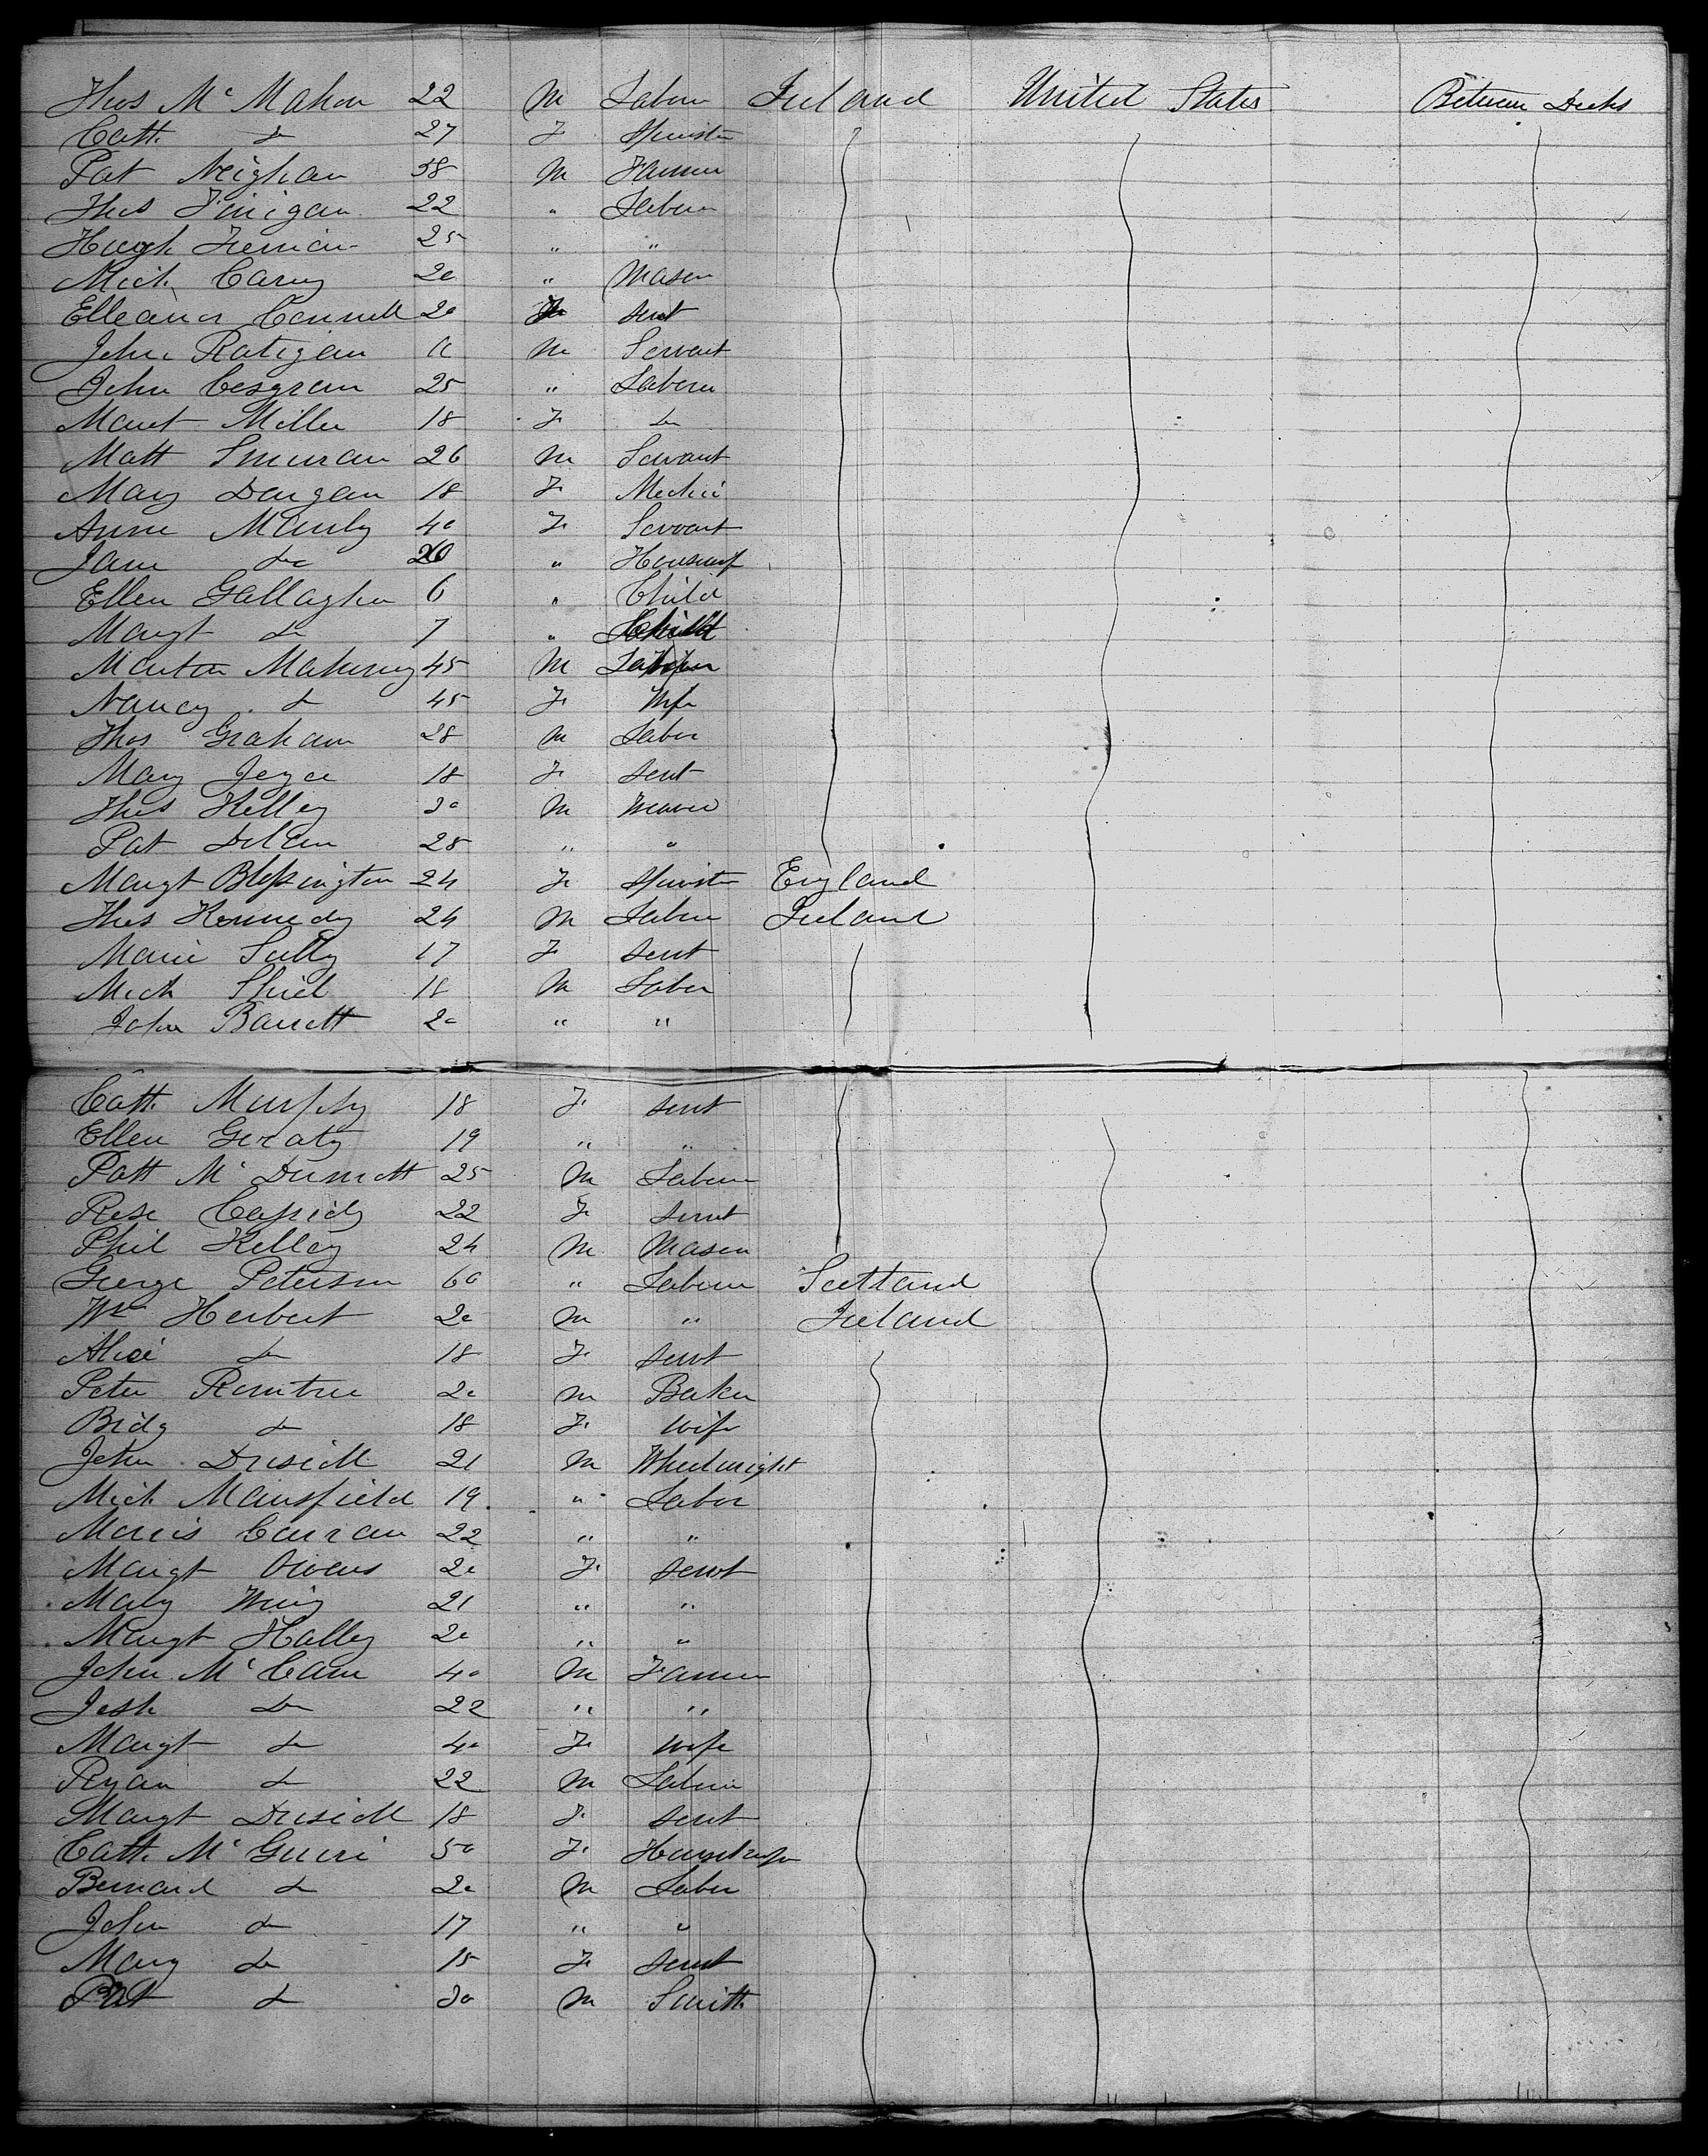 Thos McMahon 22 M Labour Ireland United States Between Decks
Cath do 27 F Spinster
Pat Neighan 38 M Farmer
Thos Finigan 22 " Labour
Hugh 25 " "
Mich Carey 20 " Mason
Elleanor Connell 20 F Servt
John Ratigan M Servant
John Cosgrain 25 " Labour
Maret Miller 18 F do
Matt 26 M Servant
Mary Dangan 18 F
Anne Manly 40 F Servant
Jane do 20 "
Ellen Gallagher 6 " Child
Margt do 7 " Child
Martin Mahoney 45 M Labour
Nancy do 45 F Wife
Thos Graham 28 M Labor
Mary Joyce 18 F Servt
Thos Kelley 20 M Weaver
Pat Dolan 28 " "
Margt Blessington 24 F Spinster England
Thos Kennedy 24 M Labour Ireland
Marie Sully 17 F Servt
Mich Shiel 18 M Labor
John Barrett 20 " "
Cath Murphy 18 F Servt
Ellen Geraty 19 " "
Patt McDermott 25 M Labour
Rose Cassidy 22 F Servt
Phil Kelley 24 M Mason
George Peterson 60 " Labour Scottland
Wm Herbert 20 M " Ireland
Alice do 18 F Servt
Peter Romtree 20 M Baker
Bridg do 18 F Wife
John Driscoll 21 M Wheelwright
Mich Mansfield 19 " Labor
Morris Curran 22 " "
Margt Owens 20 F Servt
Mary 21 " "
Margt Halley 20 " "
John McCann 40 M Farmer
Josh do 22 " "
Margt do 40 F Wife
Ryan do 22 M Labour
Margt Driscoll 18 F Servt
Cath McGuire 50 F
Bernard do 20 M Labor
John do 17 " "
Mary do 15 F Servt
Pat do 20 M Smith